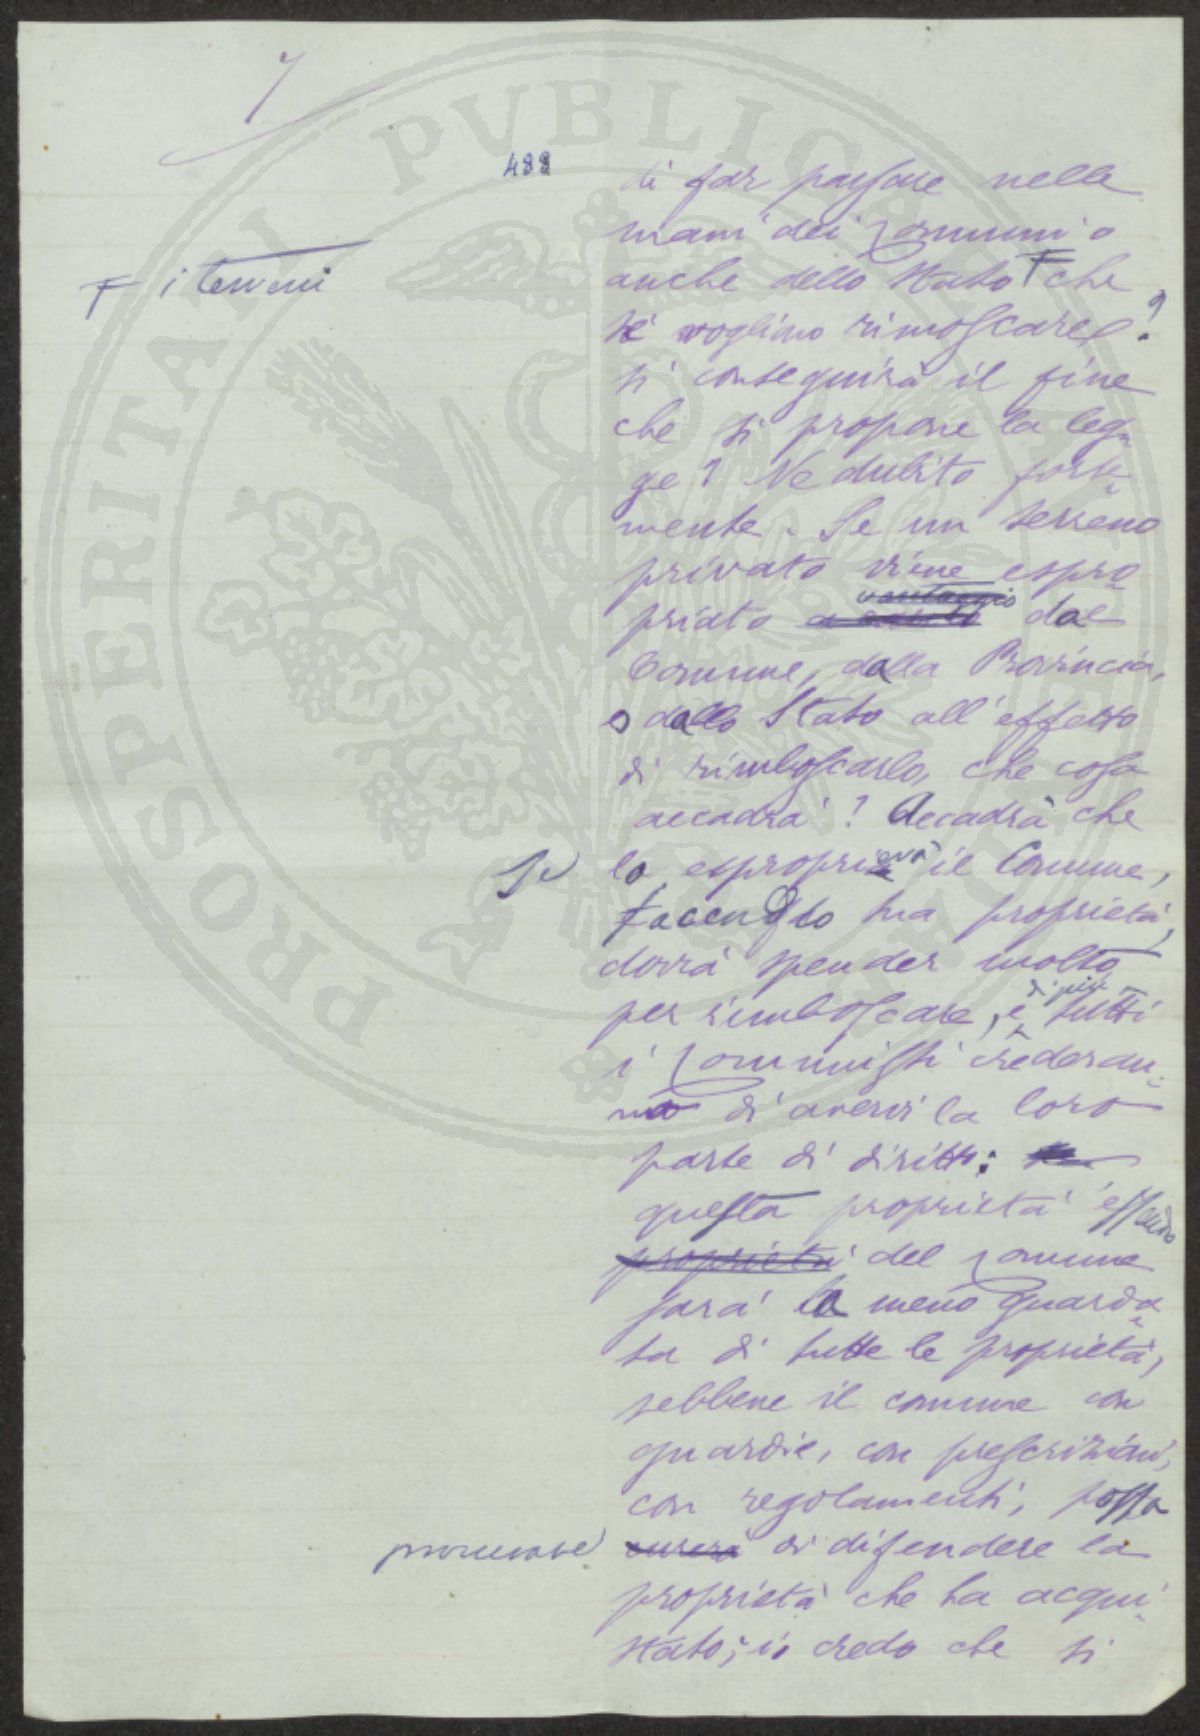 7
488
di far passare nelle
mani dei Comuni o
F i terreni
anche dello Stato F che
si vogliono rimboscare?
si conseguirà il fine
che si propone la leg-
ge? Ne dubito forte-
mente. Se un terreno
privato viene espro
vantaggio
priato dal
Comune, dalla Provincia,
o dallo Stato all'effetto
di rimboscarlo, che cosa
accadrà? Accadrà che
Se lo esproprierà il Comune,
facendolo sua proprietà,
dovrà spender molto
di più
per rimboscare, e tutti
i Comunisti crederan-
no di avervi la loro
parte di diritti;
questa proprietà essendo
proprietà del Comune
sarà la meno guarda-
ta di tutte le proprietà,
sebbene il comune con
guardie, con prescrizioni,
con regolamenti, possa
procurare curerà di difendere la
proprietà che ha acqui-
stato; io credo che si
PROSPERITATI PVBLICAE